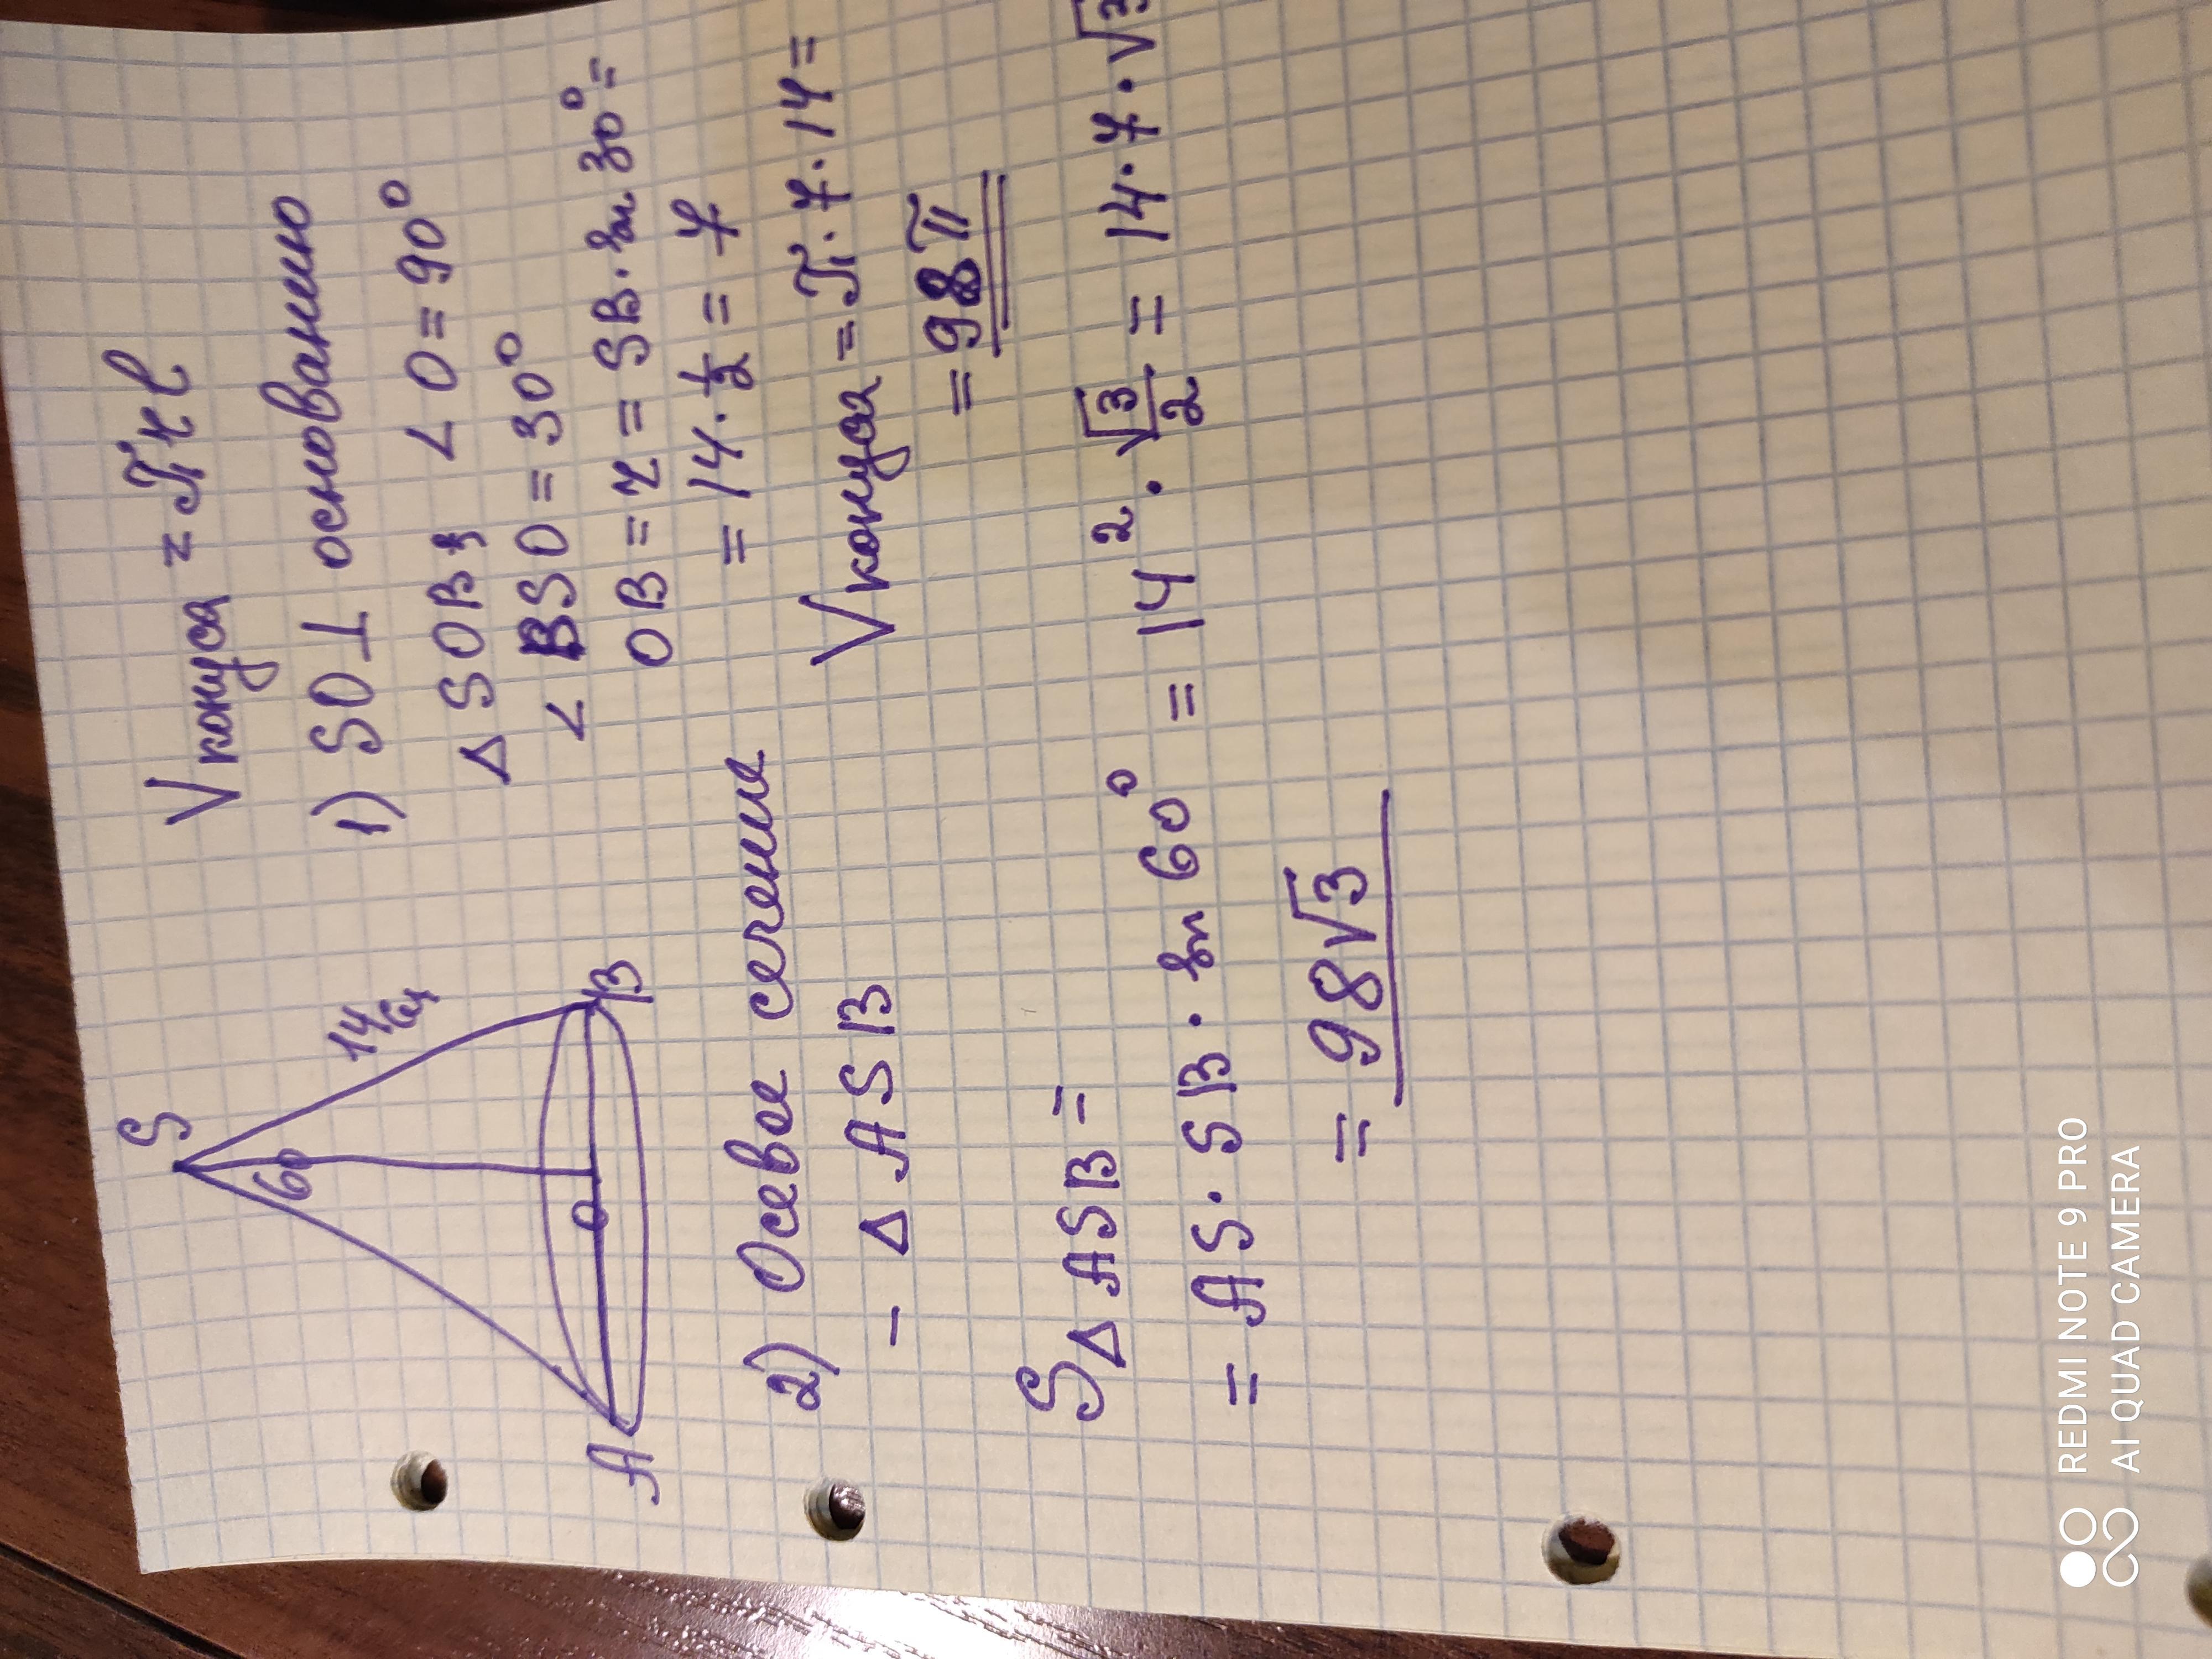 S
60
14 см
A
O
B
Vконуса = πrl
1) SO⊥ основанию
Δ SOB: ∠O = 90°
∠ BSO = 30°
OB = r = SB · sin 30° =
= 14 · 1/2 = 7
Vконуса = π · 7 · 14 =
= 98π
2) Осевое сечение
– Δ ASB
SΔASB =
= AS · SB · sin 60° = 14² · √3/2 = 14 · 7 · √3
= 98√3
REDMI NOTE 9 PRO
AI QUAD CAMERA